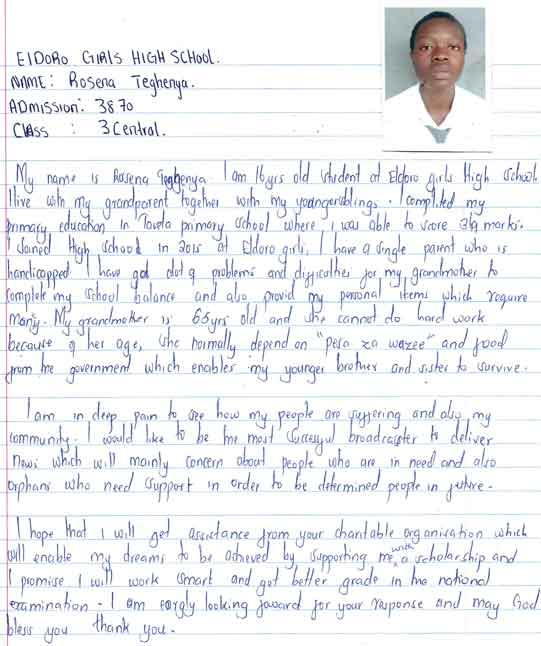 EIDORO GIRLS HIGH SCHOOL.
NAME: Rosena Teghenya.
ADMISSION: 3870
CLASS : 3 Central.
My name is Rosena Teghenya. I am 16yrs old student at Eldoro girls High school.
I live with my grandparent together with my youngersiblings. I completed my
primary education in Taveta primary school where i was able to score 319 marks.
I joined High school in 2015 at Eldoro girls, I have a single parent who is
handicapped. I have got alot of problems and difficulties for my grandmother to
complete my school balance and also provid my personal items which require
money. My grandmother is 65yrs old and she cannot do hard work
because of her age, she normally depend on "pesa za wazee" and food
from the government which enables my younger brother and sister to survive.
I am in deep pain to see how my people are suffering and also my
community. I would like to be the most successful broadcaster to deliver
news which will mainly concern about people who are in need and also
orphans who need support in order to be determined people in future.
I hope that I will get assistance from your charitable organisation which
will enable my dreams to be achieved by supporting me with a scholarship and
I promise I will work smart and get better grade in the national
examination. I am eargly looking foward for your response and may God
bless you thank you.